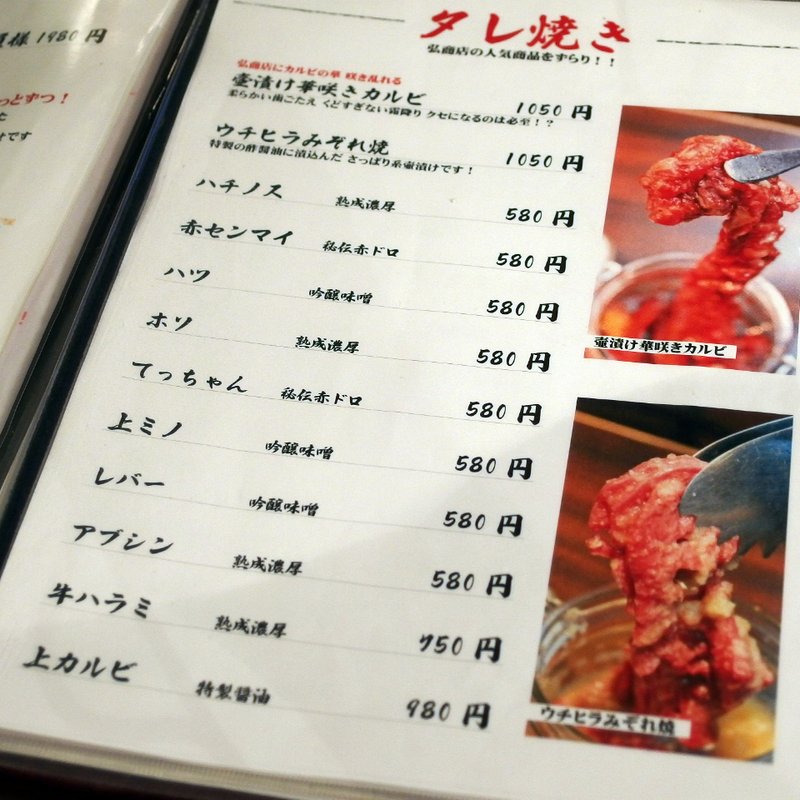 様1980円
っとずつ！
タレ焼き
弘商店の人気商品をずらり！！
弘商店にカルビの華 咲き乱れる
壺漬け華咲きカルビ 1050円
柔らかい歯ごたえ くどすぎない霜降り クセになるのは必至！？
ウチヒラみぞれ焼 1050円
特製の酢醤油に漬込んだ さっぱり系壷漬けです！
ハチノス 熟成濃厚 580円
赤センマイ 秘伝赤ドロ 580円
ハツ 吟醸味噌 580円
ホソ 熟成濃厚 580円
てっちゃん 秘伝赤ドロ 580円
上ミノ 吟醸味噌 580円
レバー 吟醸味噌 580円
アブシン 熟成濃厚 580円
牛ハラミ 熟成濃厚 750円
上カルビ 特製醤油 980円
壺漬け華咲きカルビ
ウチヒラみぞれ焼